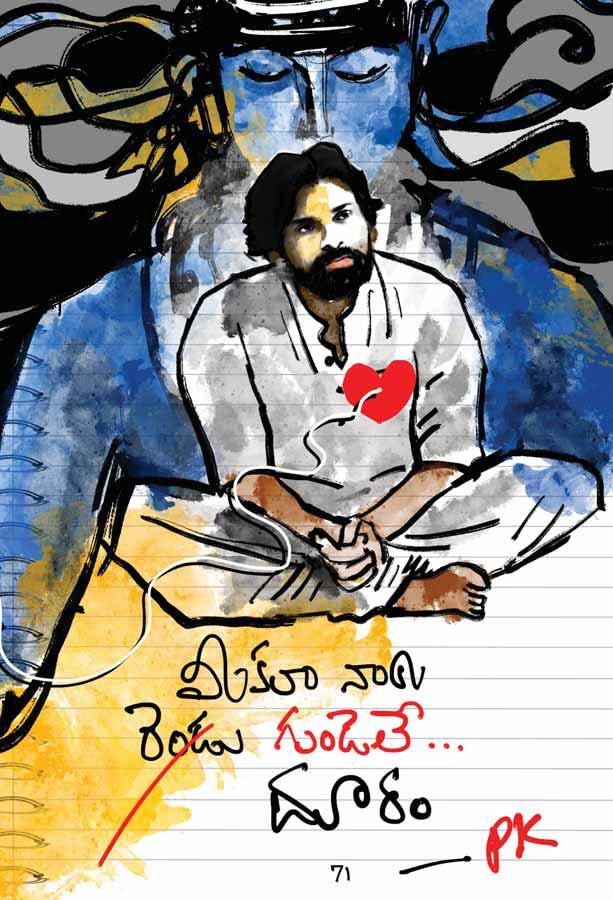 మీకూ నాకు
రెండు గుండెలే...
దూరం
PK
71